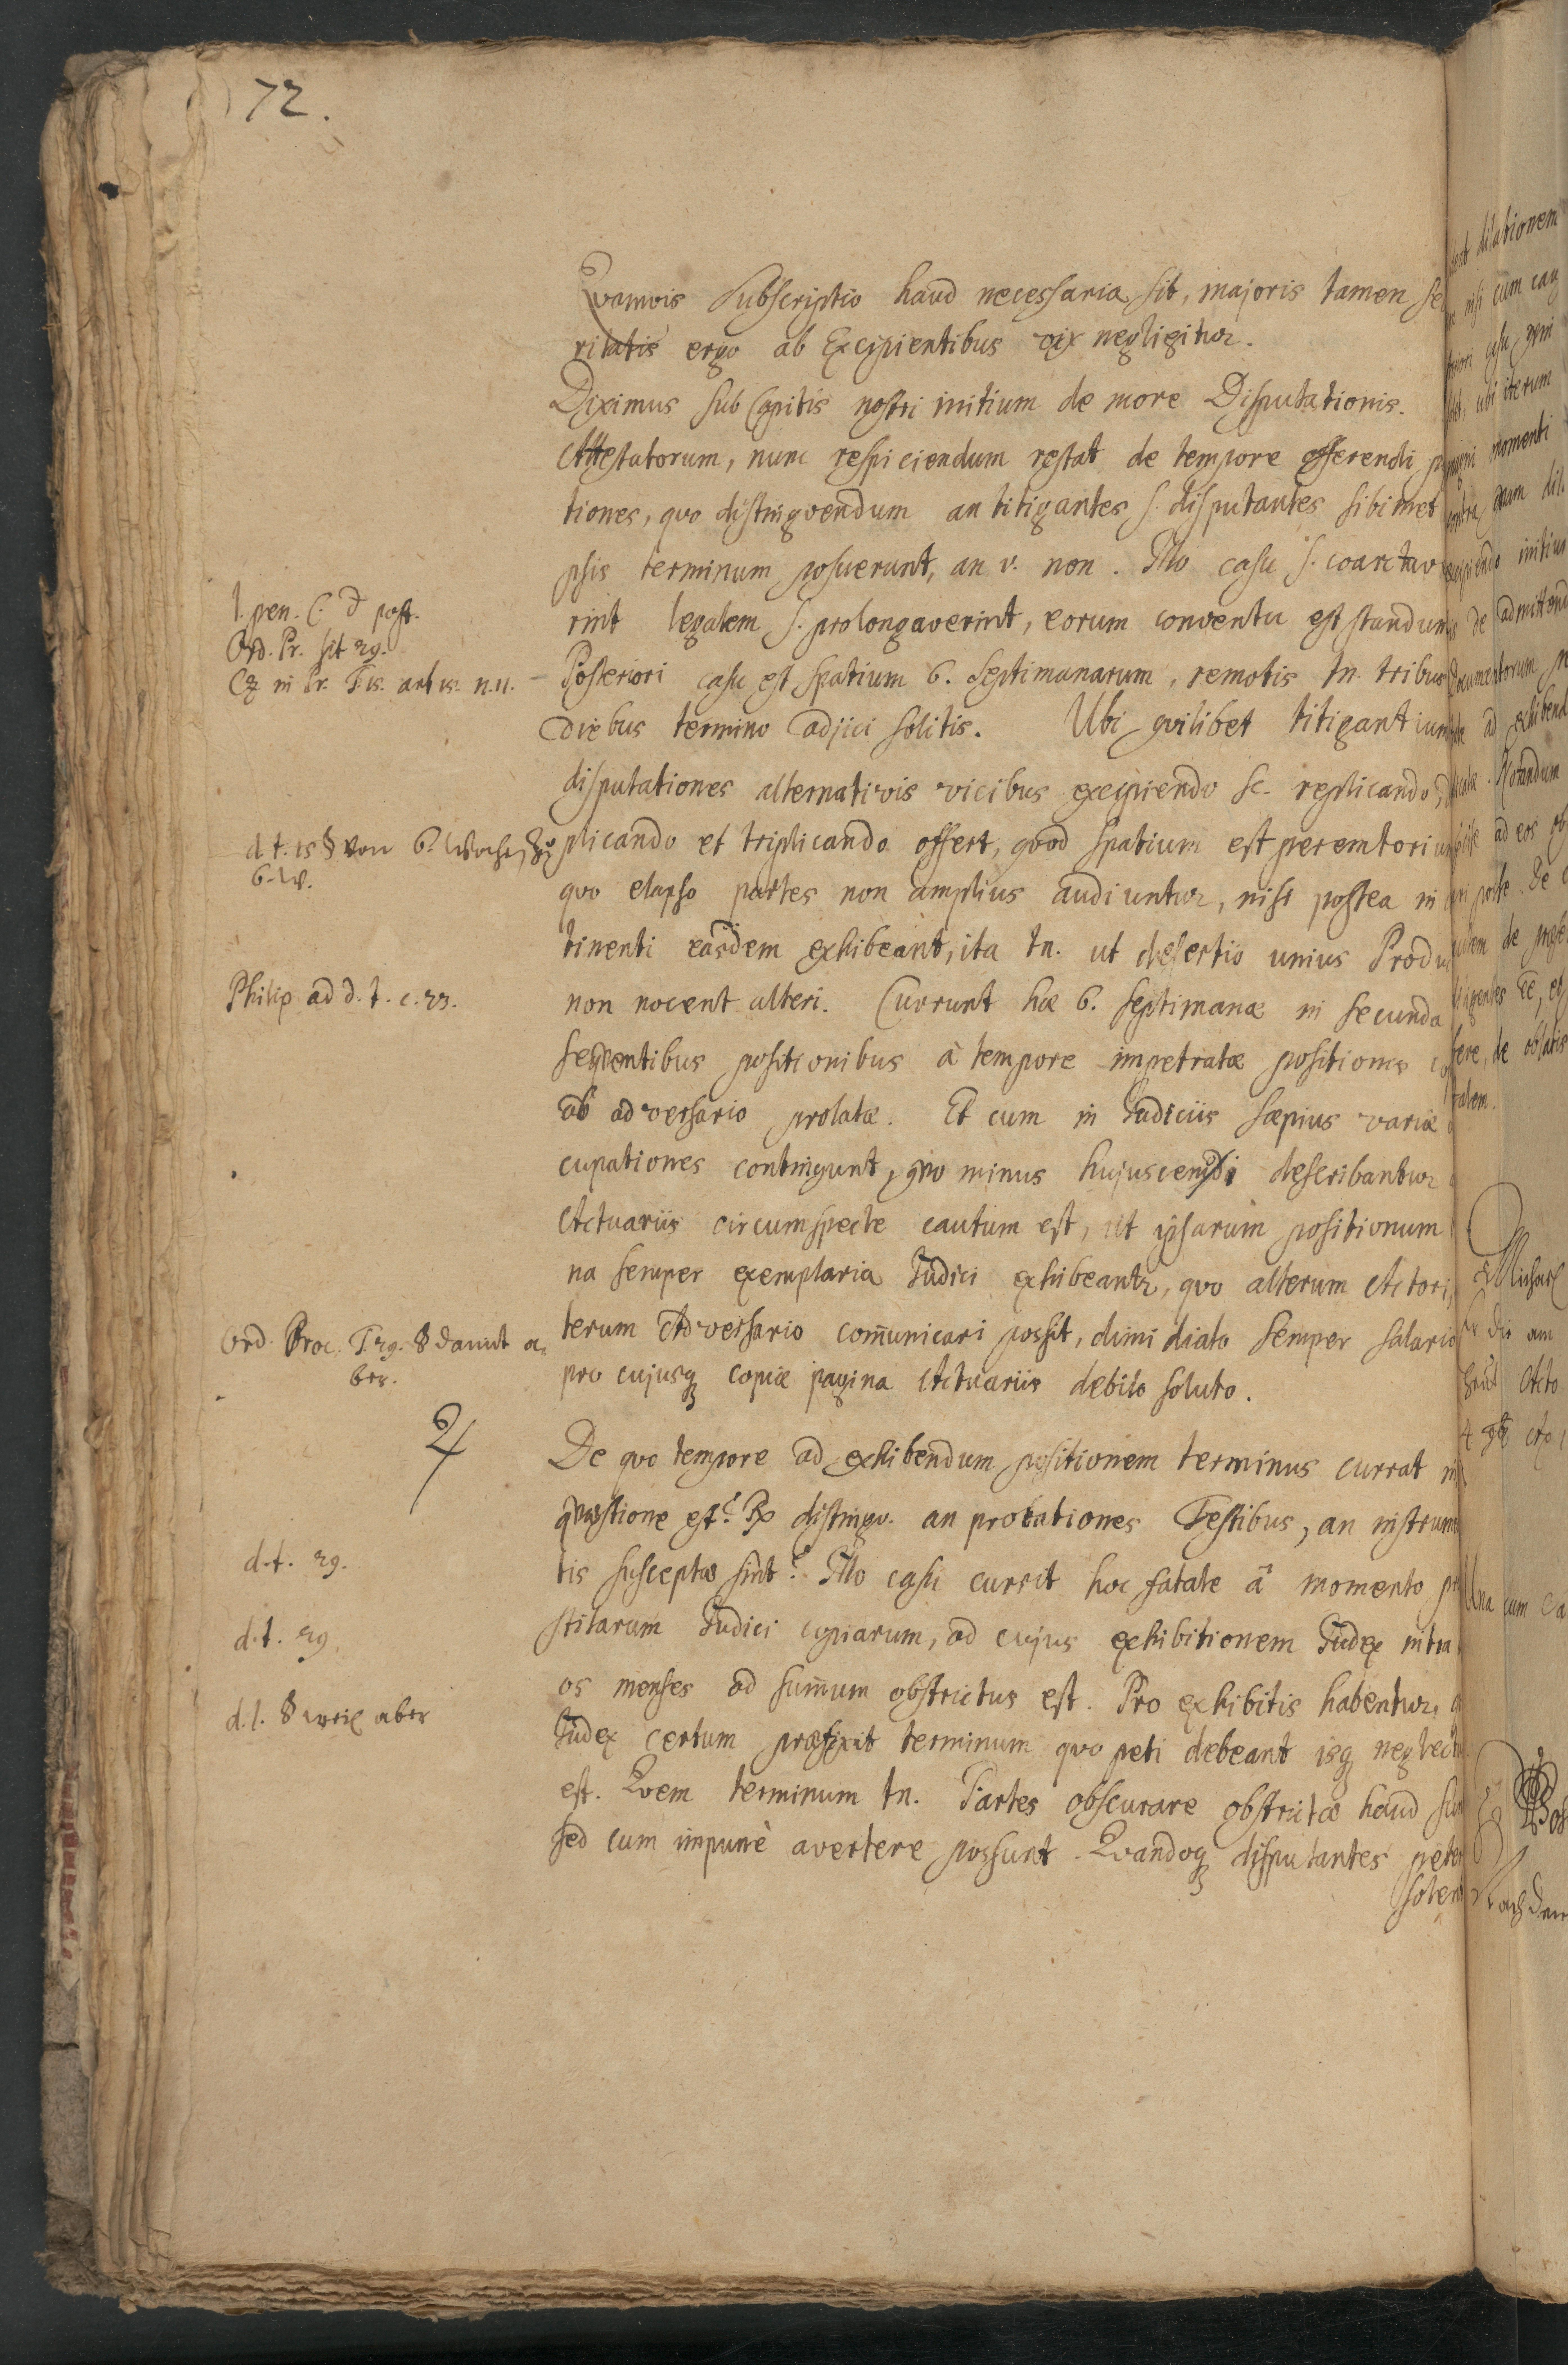 72.
Qvamvis Subscriptio haud necessaria sit, majoris tamen se
ritatis ergo ab Excipientibus vix negligitur.
Diximus sub Capitis nostri initium de more Disputationis.
Attestatorum, nunc respiciendum restat de tempore offerendi
tiones, quo distingvendum an litigantes s. disputantes sibimet
psis terminum posuerunt, an v. non. Illo casu s. coarctav
l. pen. C. d post.
rint legalem s. prolongaverint, eorum conventu est standum
Ord. Pr. tit 29.
Posteriori casu est spatium 6. Septimanarum, remotis tn. tribus
Cz in Pr. T. 15. art 15. n. 11.
diebus termino adjici solitis. Ubi qvilibet litigantium
disputationes alternativis vicibus excipiendo sc. replicando,
d. t. 15 § von 6. Wochen
6. W.
plicando et triplicando offert, qvod spatium est peremtorium
quo elapso partes non amplius audiuntur, nisi postea in
tinenti easdem exhibeant, ita tn. ut desertio unius Produ
Philip ad d. t. c. 23.
non nocent alteri. Currunt hæ 6. septimanæ in secunda
seqventibus positionibus à tempore impetratæ positionis
ab adversario prolatæ. Et cum in Judiciis sæpius variæ
cupationes contingunt, qvo minus hujuscemodi describantur
Actuariis circumspecte cautum est, ut ipsarum positionum
na semper exemplaria Judici exhibeantr, quo alterum Actori,
Ord. Proc. T. 29. § damit a=
ber.
terum Adversario com̃unicari possit, dimidiato semper salario
pro cujusq copiæ pagina Actuariis debito soluto.
De quo tempore ad exhibendum positionem terminus currat in
qvæstione est? Rx distingv. an probationes Testibus, an instrum
d. t. 29.
tis susceptæ sint? Illo casu currit hoc fatale à momento
d. t. 29.
stitarum Judici copiarum, ad cujus exhibitionem Judex intra
os menses ad sum̃um obstrictus est. Pro exhibitis habentur,
d. l. § weil aber
Judex certum præfixit terminum quo peti debeant isq neglect
est. Qvem terminum tn. Partes obscurare obstrictæ haud sun
sed cum impunè avertere possunt. Qvandoq disputantes peter
solent